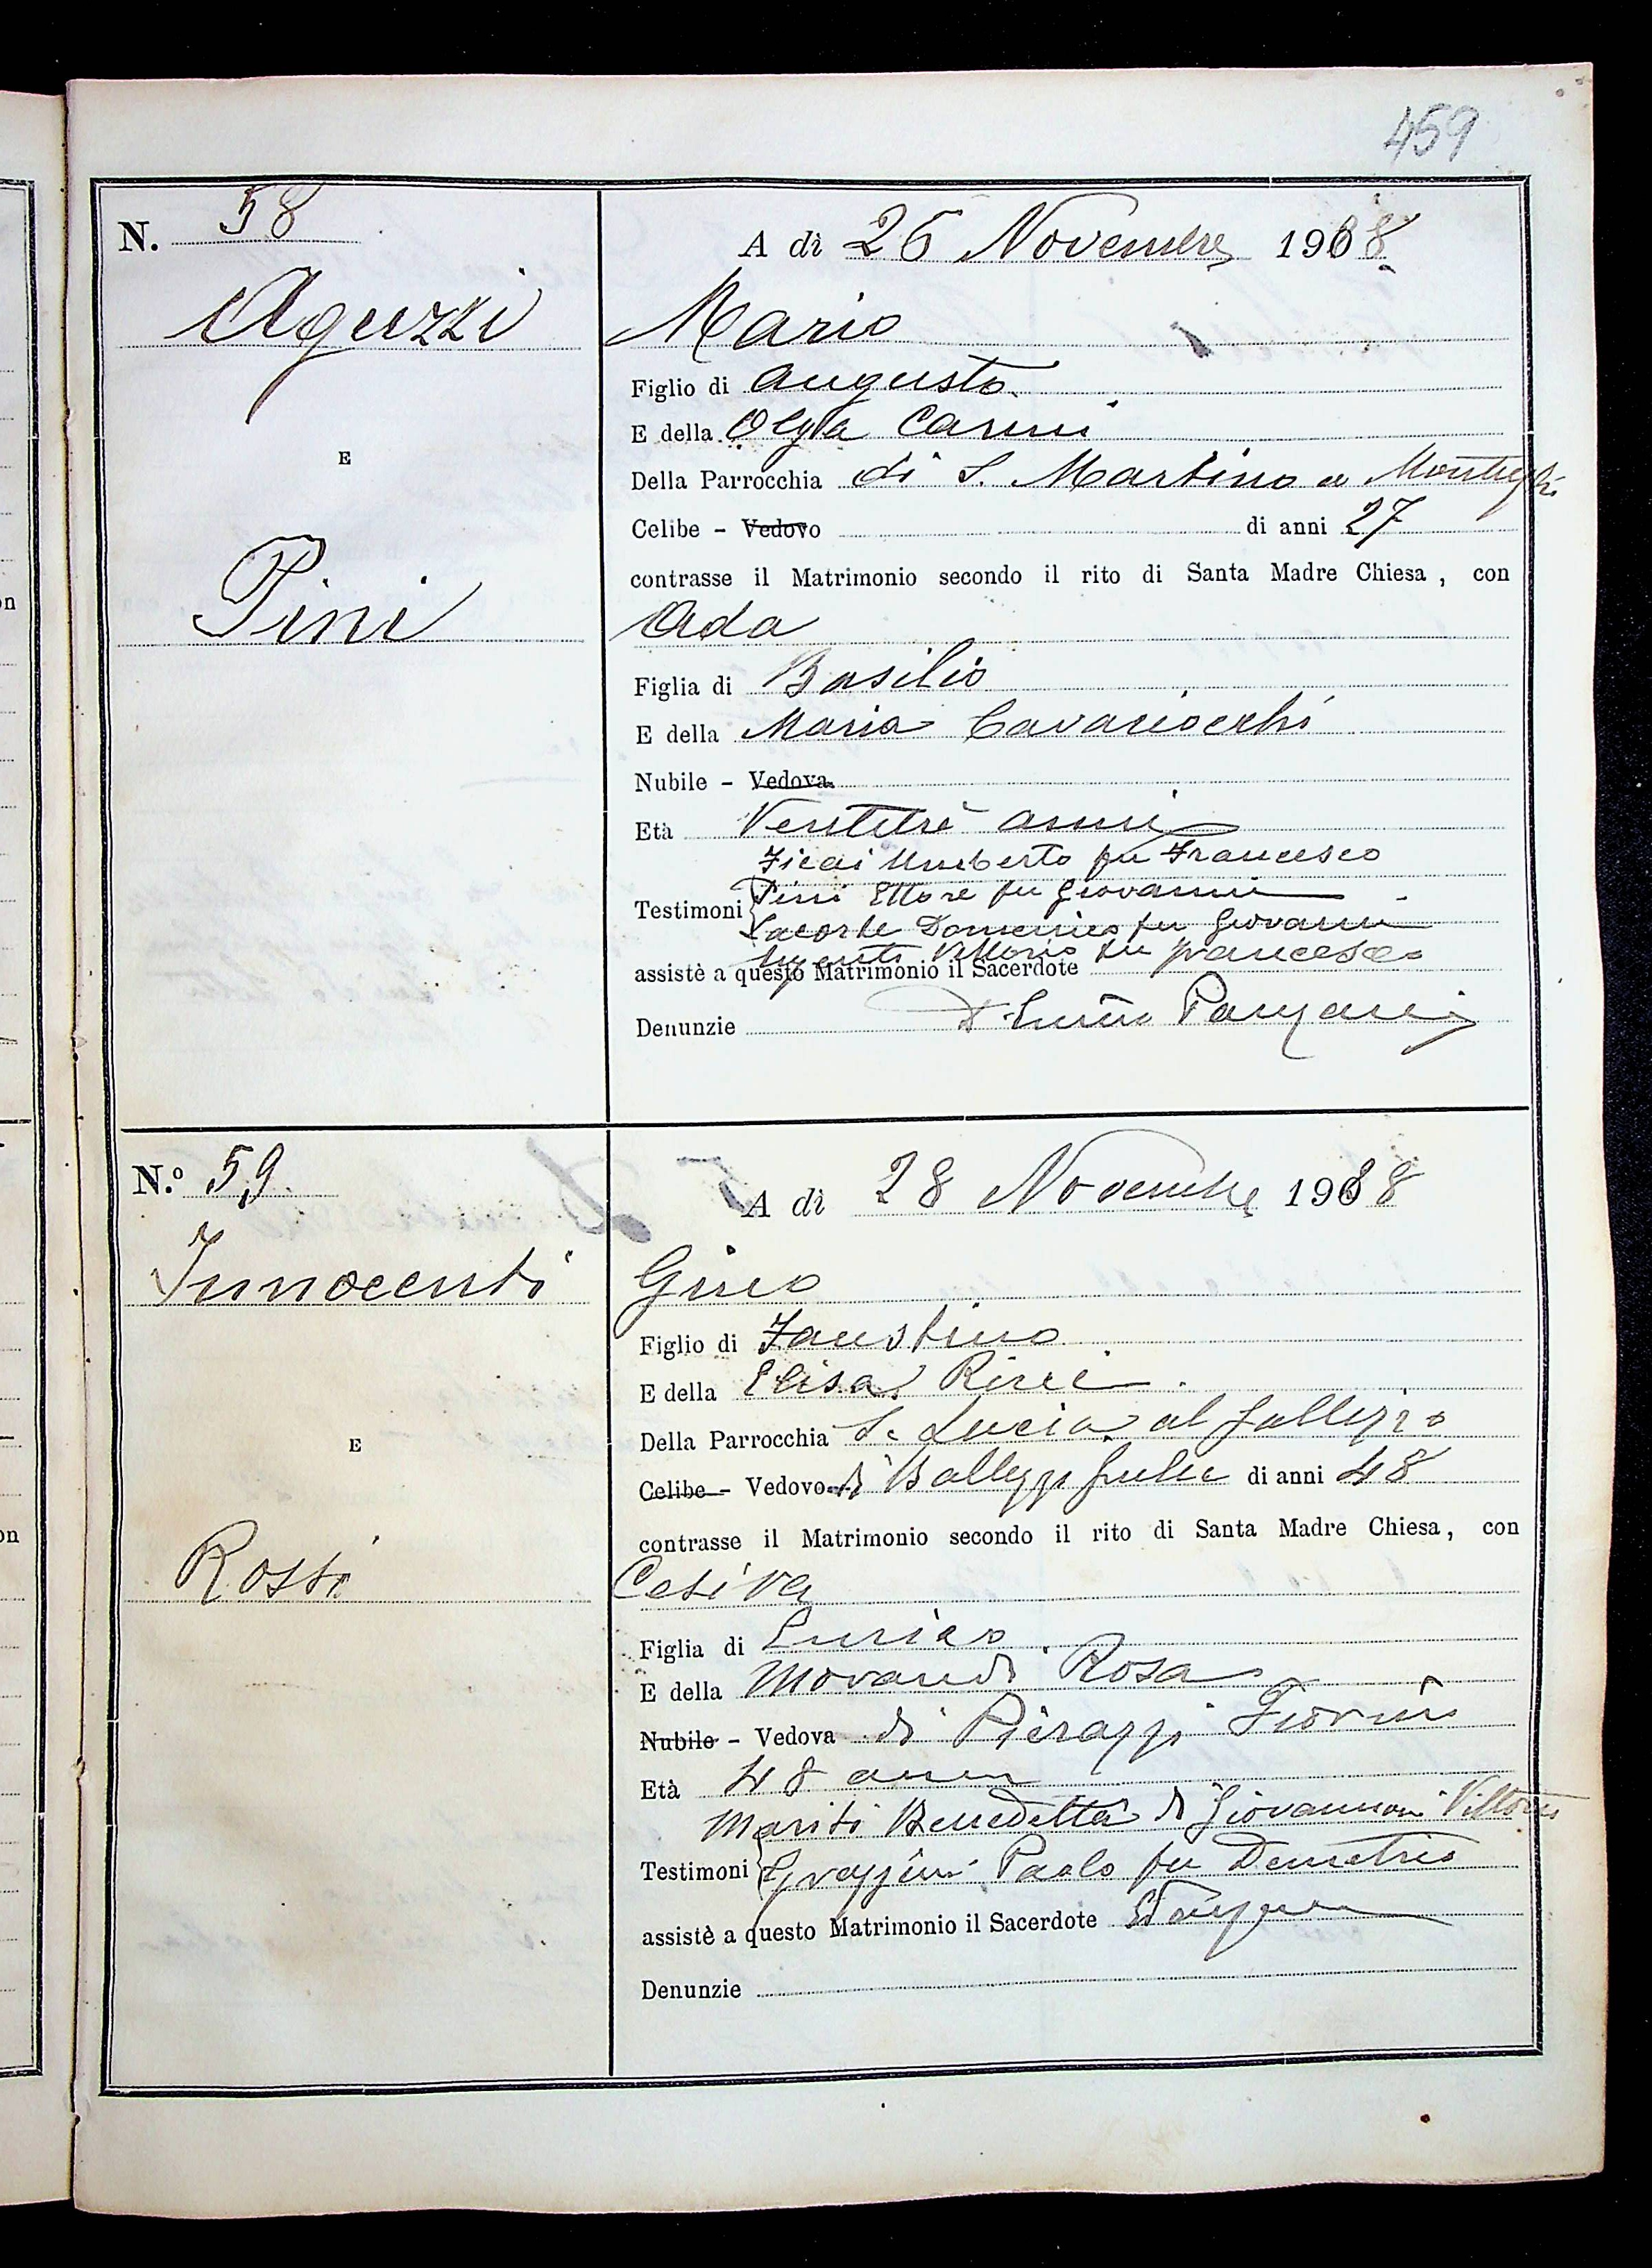 459
N. 58
A dì 26 Novembre 1918
Aguzzi
Mario
Figlio di Augusto
E della Olga Carini
Della Parrocchia di S. Martino a Montughi
E
Celibe - Vedovo di anni 27
contrasse il Matrimonio secondo il rito di Santa Madre Chiesa, con
Pini
Ada
Figlia di Basilio
E della Maria Cavaciocchi
Nubile - Vedova
Età Ventitrè anni
Ficai Umberto fu Francesco
Testimoni Pini Ettore fu Giovanni
Lacorte Domenico fu Giovanni
Vittorio fu Francesco
assistè a questo Matrimonio il Sacerdote
Denunzie Panzani
N.º 59
A dì 28 Novembre 1918
Innocenti
Gino
Figlio di Faustino
E della Elisa Ricci
Della Parrocchia S. Lucia al Galluzzo
E
Celibe - Vedovo di di anni 48
contrasse il Matrimonio secondo il rito di Santa Madre Chiesa, con
Rossi
Cesira
Figlia di Enrico
E della Morandi Rosa
Nubile - Vedova di Pierazzi
Età 48 anni
Mariti Benedetta di Giovannoni Vittorio
Testimoni Paolo fu Demetrio
assistè a questo Matrimonio il Sacerdote
Denunzie